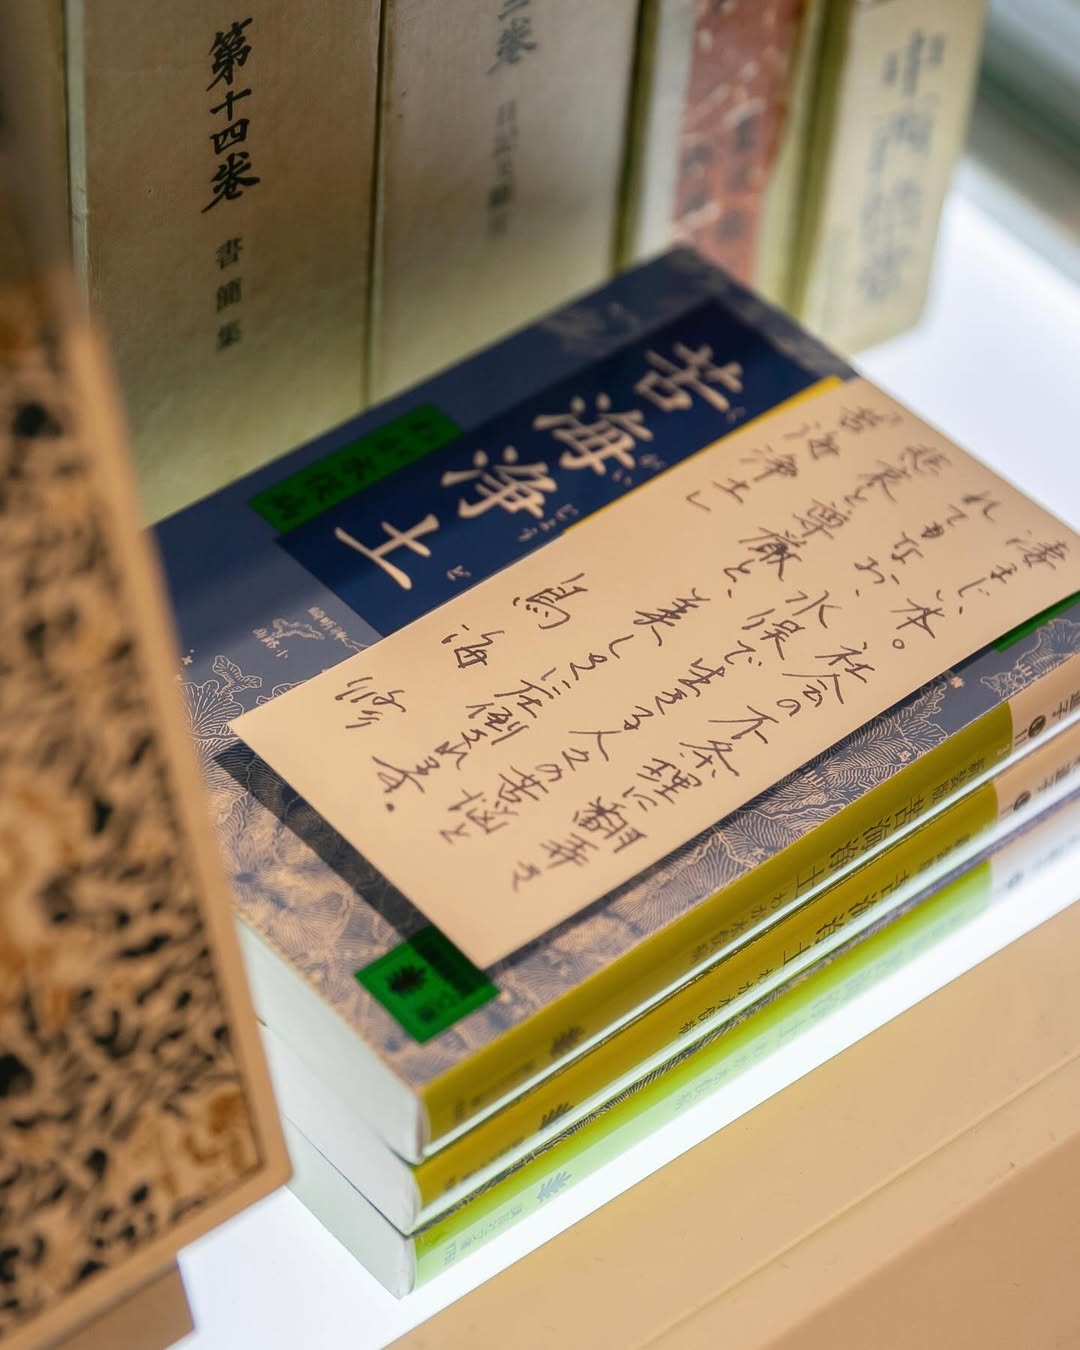 第十四巻 書簡集
苦海浄土
くがいじょうど
わが水俣病
『苦海浄土』
凄まじい本。社会の不条理に翻弄さ
れてもなお、水俣で生きる人々の苦悩と
悲哀と尊厳と、美しさに圧倒されます。
鳥海 修
新装版 苦海浄土 わが水俣病
苦海浄土 わが水俣病